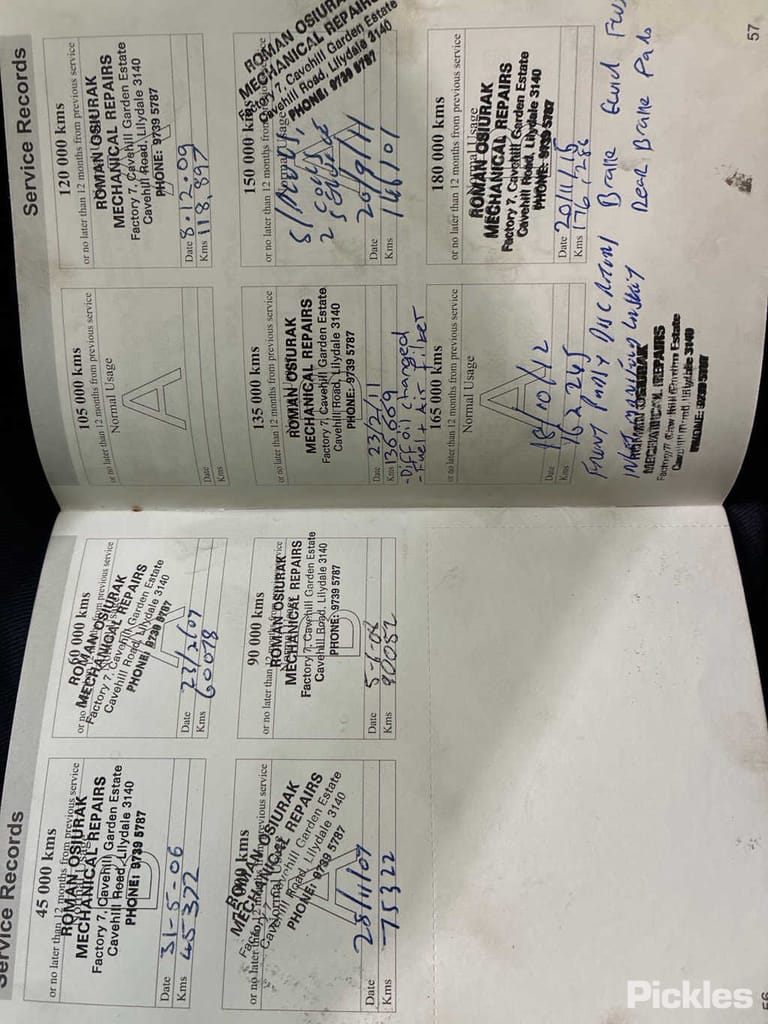 Service Records
45 000 kms
or no later than 12 months from previous service
ROMAN OSIURAK
MECHANICAL REPAIRS
Factory 7, Cavehill Garden Estate
Cavehill Road, Lilydale 3140
PHONE: 9739 5787
Date 31-5-06
Kms 45322
60 000 kms
or no later than 12 months from previous service
ROMAN OSIURAK
MECHANICAL REPAIRS
Factory 7, Cavehill Garden Estate
Cavehill Road, Lilydale 3140
PHONE: 9739 5787
Date 23/2/07
Kms 60078
or no later than 12 months from previous service
Normal Usage
ROMAN OSIURAK
MECHANICAL REPAIRS
Factory 7, Cavehill Garden Estate
Cavehill Road, Lilydale 3140
PHONE: 9739 5787
Date 28/11/07
Kms 75322
90 000 kms
or no later than 12 months from previous service
ROMAN OSIURAK
MECHANICAL REPAIRS
Factory 7, Cavehill Garden Estate
Cavehill Road, Lilydale 3140
PHONE: 9739 5787
Date
Kms 90052
56
Service Records
105 000 kms
or no later than 12 months from previous service
Normal Usage
A
Date
Kms
120 000 kms
or no later than 12 months from previous service
ROMAN OSIURAK
MECHANICAL REPAIRS
Factory 7, Cavehill Garden Estate
Cavehill Road, Lilydale 3140
PHONE: 9739 5787
Date 8.12.09
Kms 118,897
135 000 kms
or no later than 12 months from previous service
ROMAN OSIURAK
MECHANICAL REPAIRS
Factory 7, Cavehill Garden Estate
Cavehill Road, Lilydale 3140
PHONE: 9739 5787
Date 23/2/11
Kms 136669
- Diff oil changed
- Fuel + Air Filter
150 000 kms
or no later than 12 months from previous service
Normal Usage
ROMAN OSIURAK
MECHANICAL REPAIRS
Factory 7, Cavehill Garden Estate
Cavehill Road, Lilydale 3140
PHONE: 9739 5787
Date 20/9/11
Kms 146101
165 000 kms
or no later than 12 months from previous service
Normal Usage
A
Date 18/10/12
Kms 162245
180 000 kms
or no later than 12 months from previous service
Normal Usage
ROMAN OSIURAK
MECHANICAL REPAIRS
Factory 7, Cavehill Garden Estate
Cavehill Road, Lilydale 3140
PHONE: 9739 5787
Date 20/11/15
Kms 176,286
Brake
Rear Brake Pads
MECHANICAL REPAIRS
57
Pickles